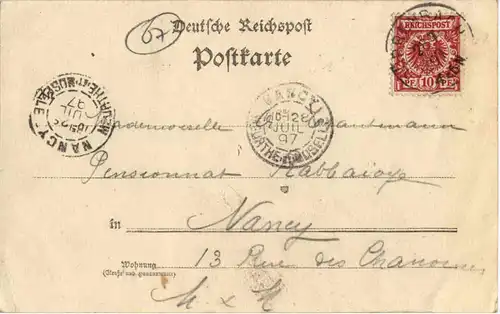 67
Deutsche Reichspost
Postkarte
REICHSPOST
PF 10 PF
NANCY
MEURTHE-ET-MOSELLE
JUIL
97
NANCY
28
JUIL
97
MEURTHE-ET-MOSELLE
Mademoiselle
Pensionnat
in Nancy
Wohnung
(Straße und Hausnummer)
13 Rue des Chanoines
M x M